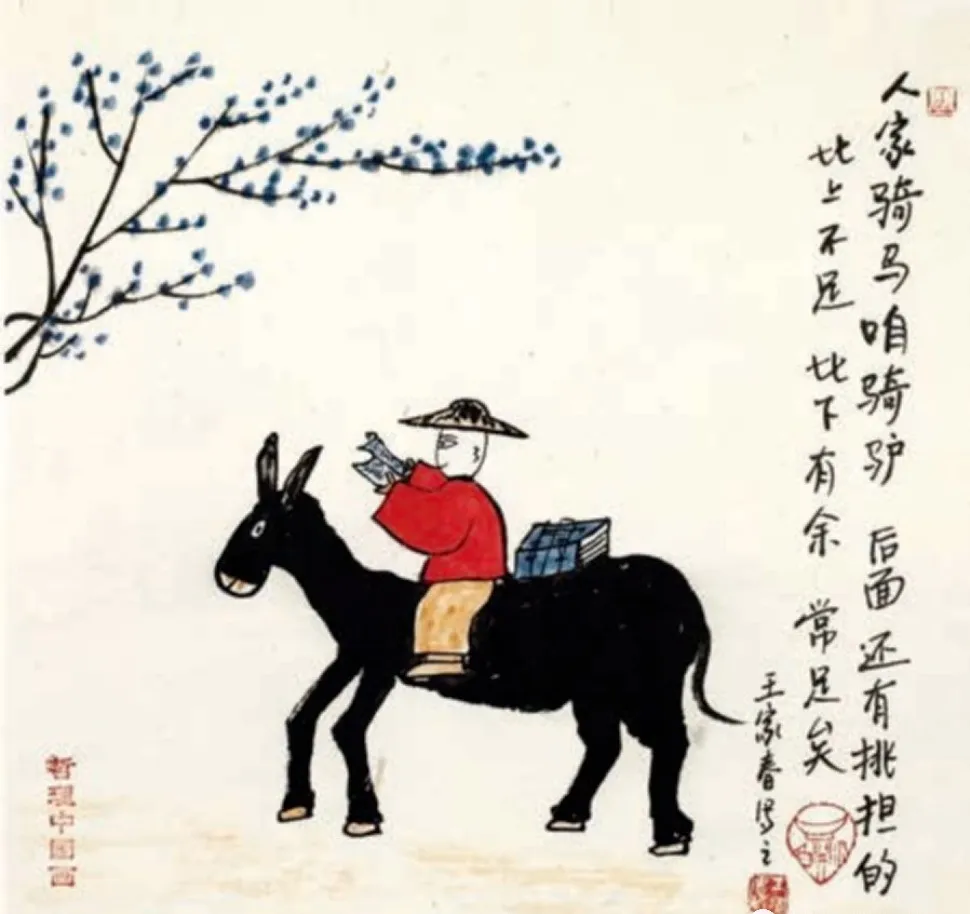 人家骑马咱骑驴 后面还有挑担的
比上不足 比下有余 常足矣
王家春
哲理中国画